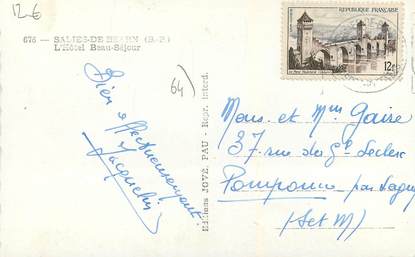 12€
676 — SALIES-DE-BEARN (B.-P.)
L'Hôtel Beau-Séjour
64)
Bien affectueusement
Jacqueline
Editions JOVÉ, PAU - Repr. interd.
REPUBLIQUE FRANÇAISE
12F
Mons. et Mme Gaire
37 rue du Gl Leclerc
Pomponne par Lagny
(S et M)